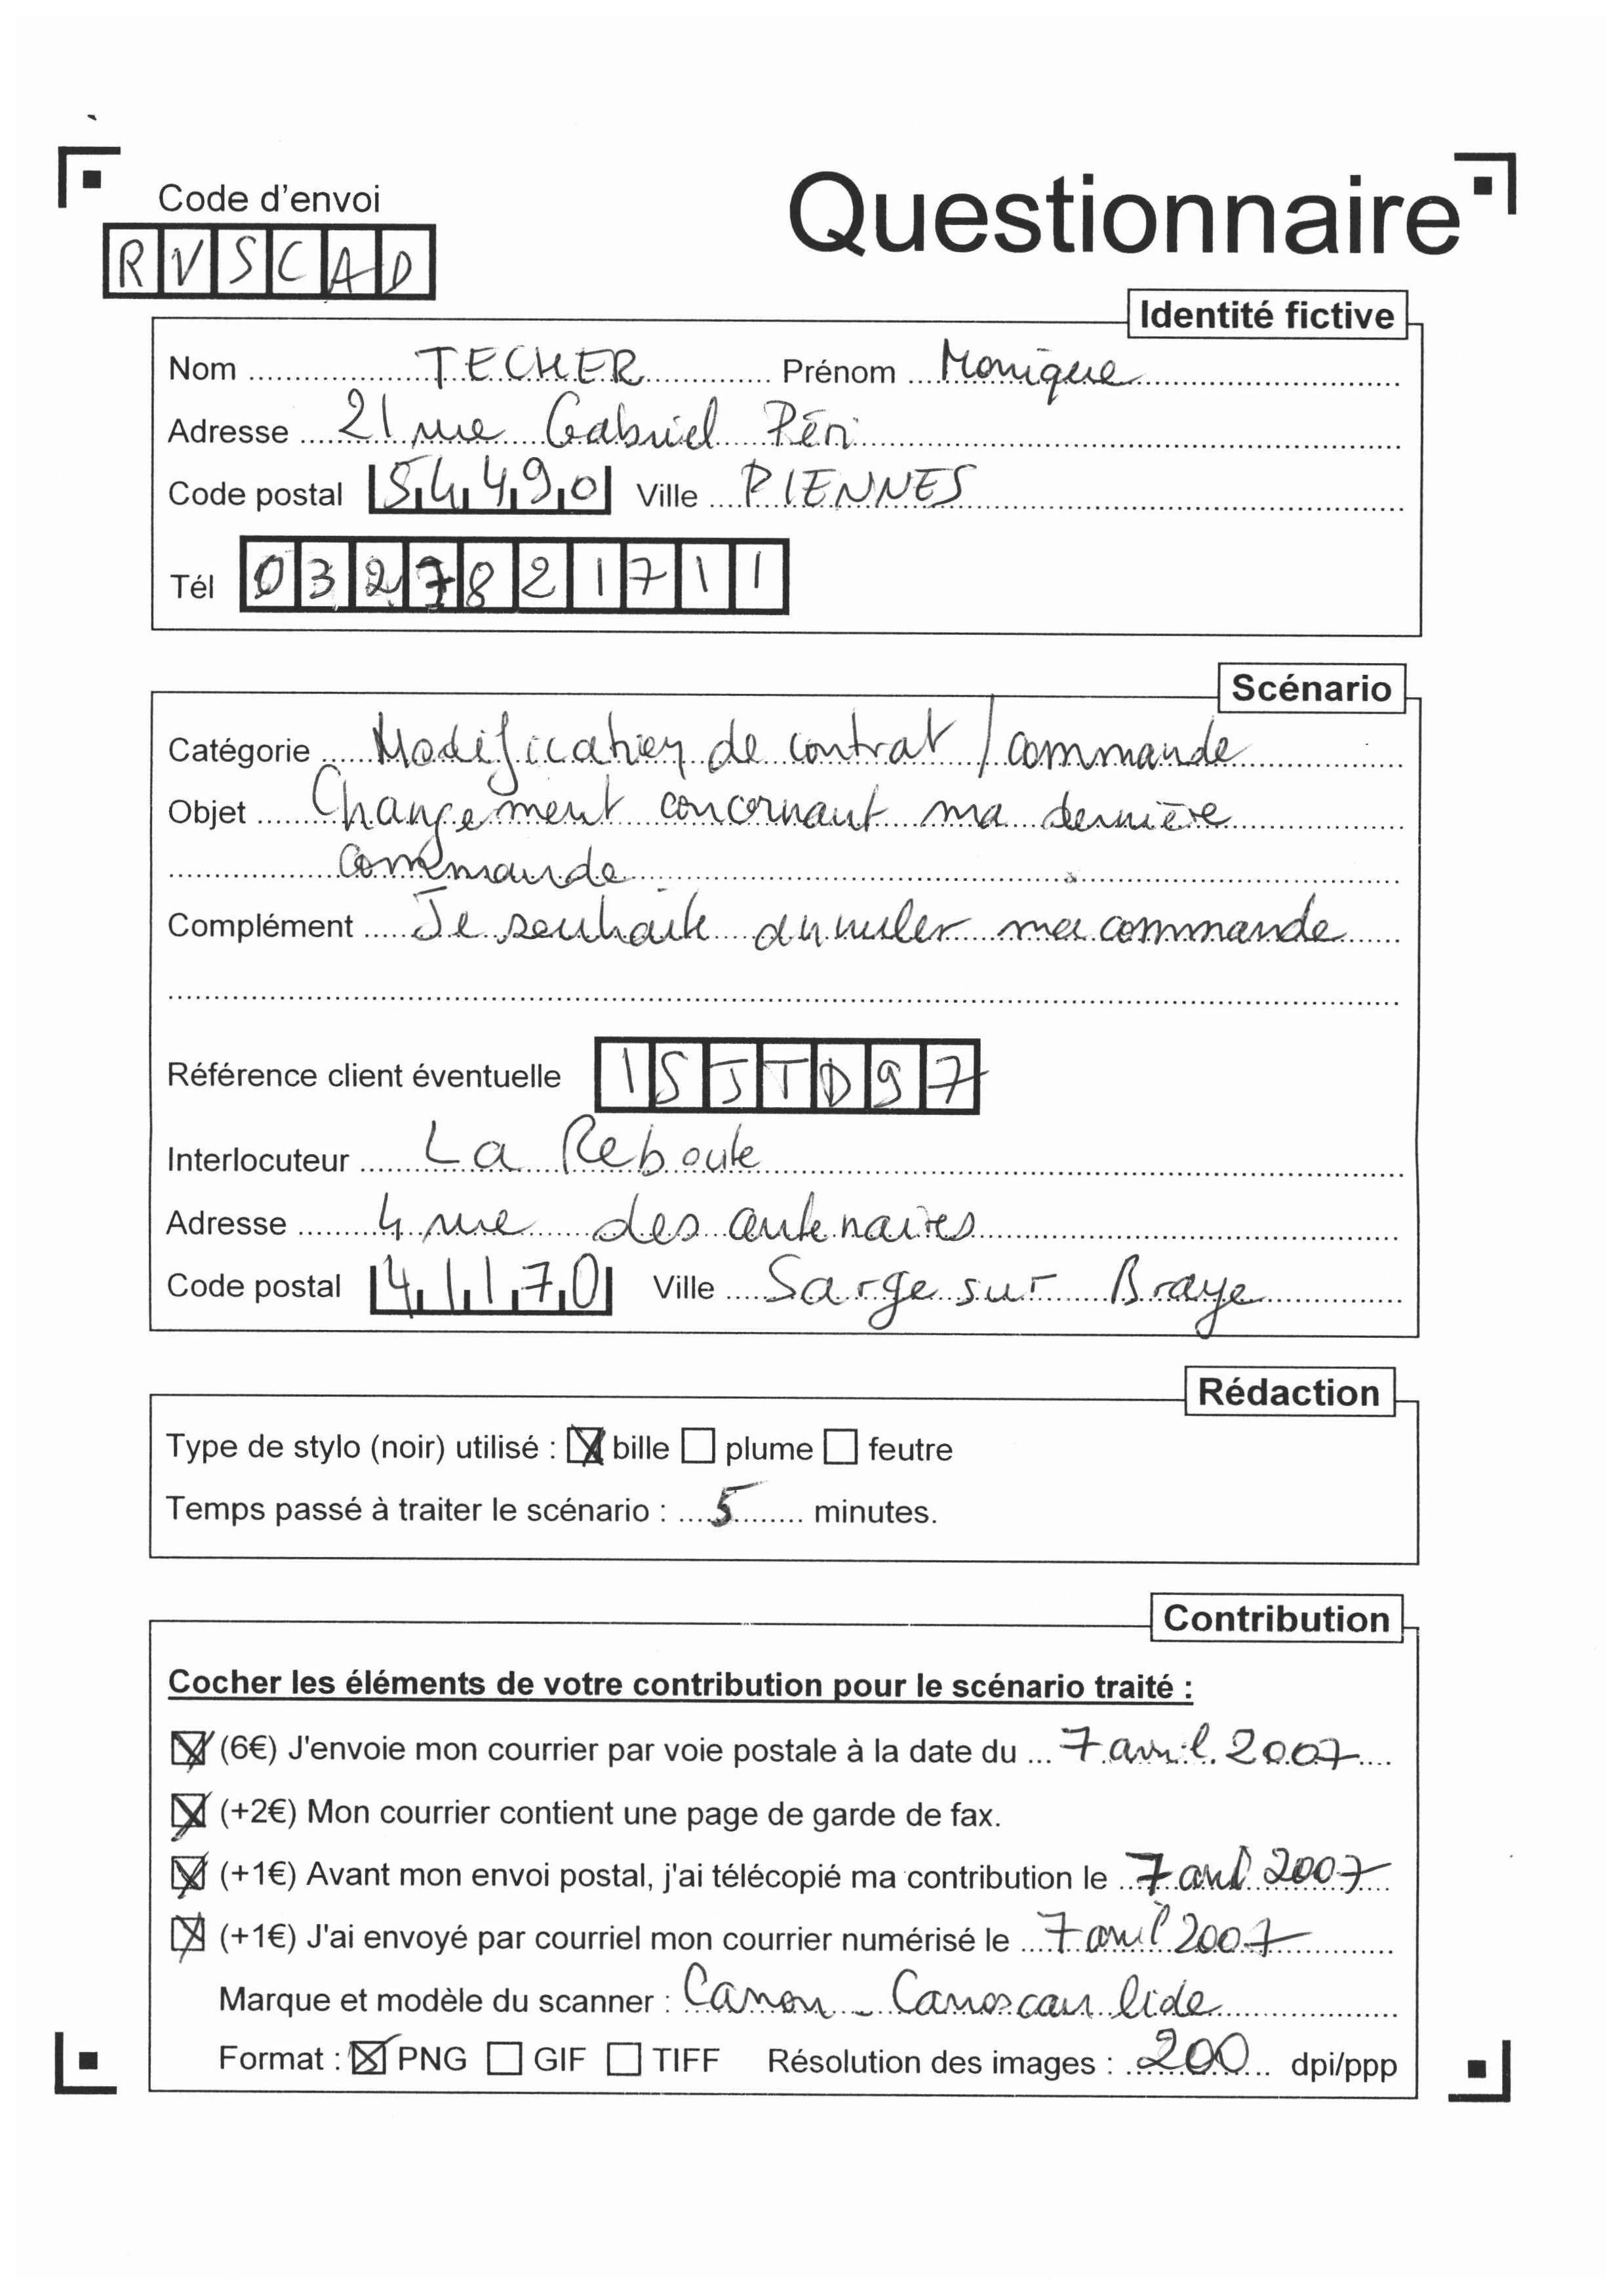 Code d'envoi
Questionnaire
RVSCAD
Identité fictive
Nom TECHER Prénom Monique
Adresse 21 rue Gabriel Péri
Code postal 54490 Ville PIENNES
Tél 0327821711
Scénario
Catégorie Modification de contrat / commande
Objet Changement concernant ma dernière
commande
Complément Je souhaite annuler ma commande
Référence client éventuelle ISJTD97
Interlocuteur La Reboute
Adresse 4 rue des antenaires
Code postal 41170 Ville Sarge sur Braye
Rédaction
Type de stylo (noir) utilisé : bille plume feutre
Temps passé à traiter le scénario : 5 minutes.
Contribution
Cocher les éléments de votre contribution pour le scénario traité :
(6€) J'envoie mon courrier par voie postale à la date du ... 7 avril 2007
(+2€) Mon courrier contient une page de garde de fax.
(+1€) Avant mon envoi postal, j'ai télécopié ma contribution le 7 avril 2007
(+1€) J'ai envoyé par courriel mon courrier numérisé le 7 avril 2007
Marque et modèle du scanner : Canon - Canoscan lide
Format : PNG GIF TIFF Résolution des images : 200 dpi/ppp